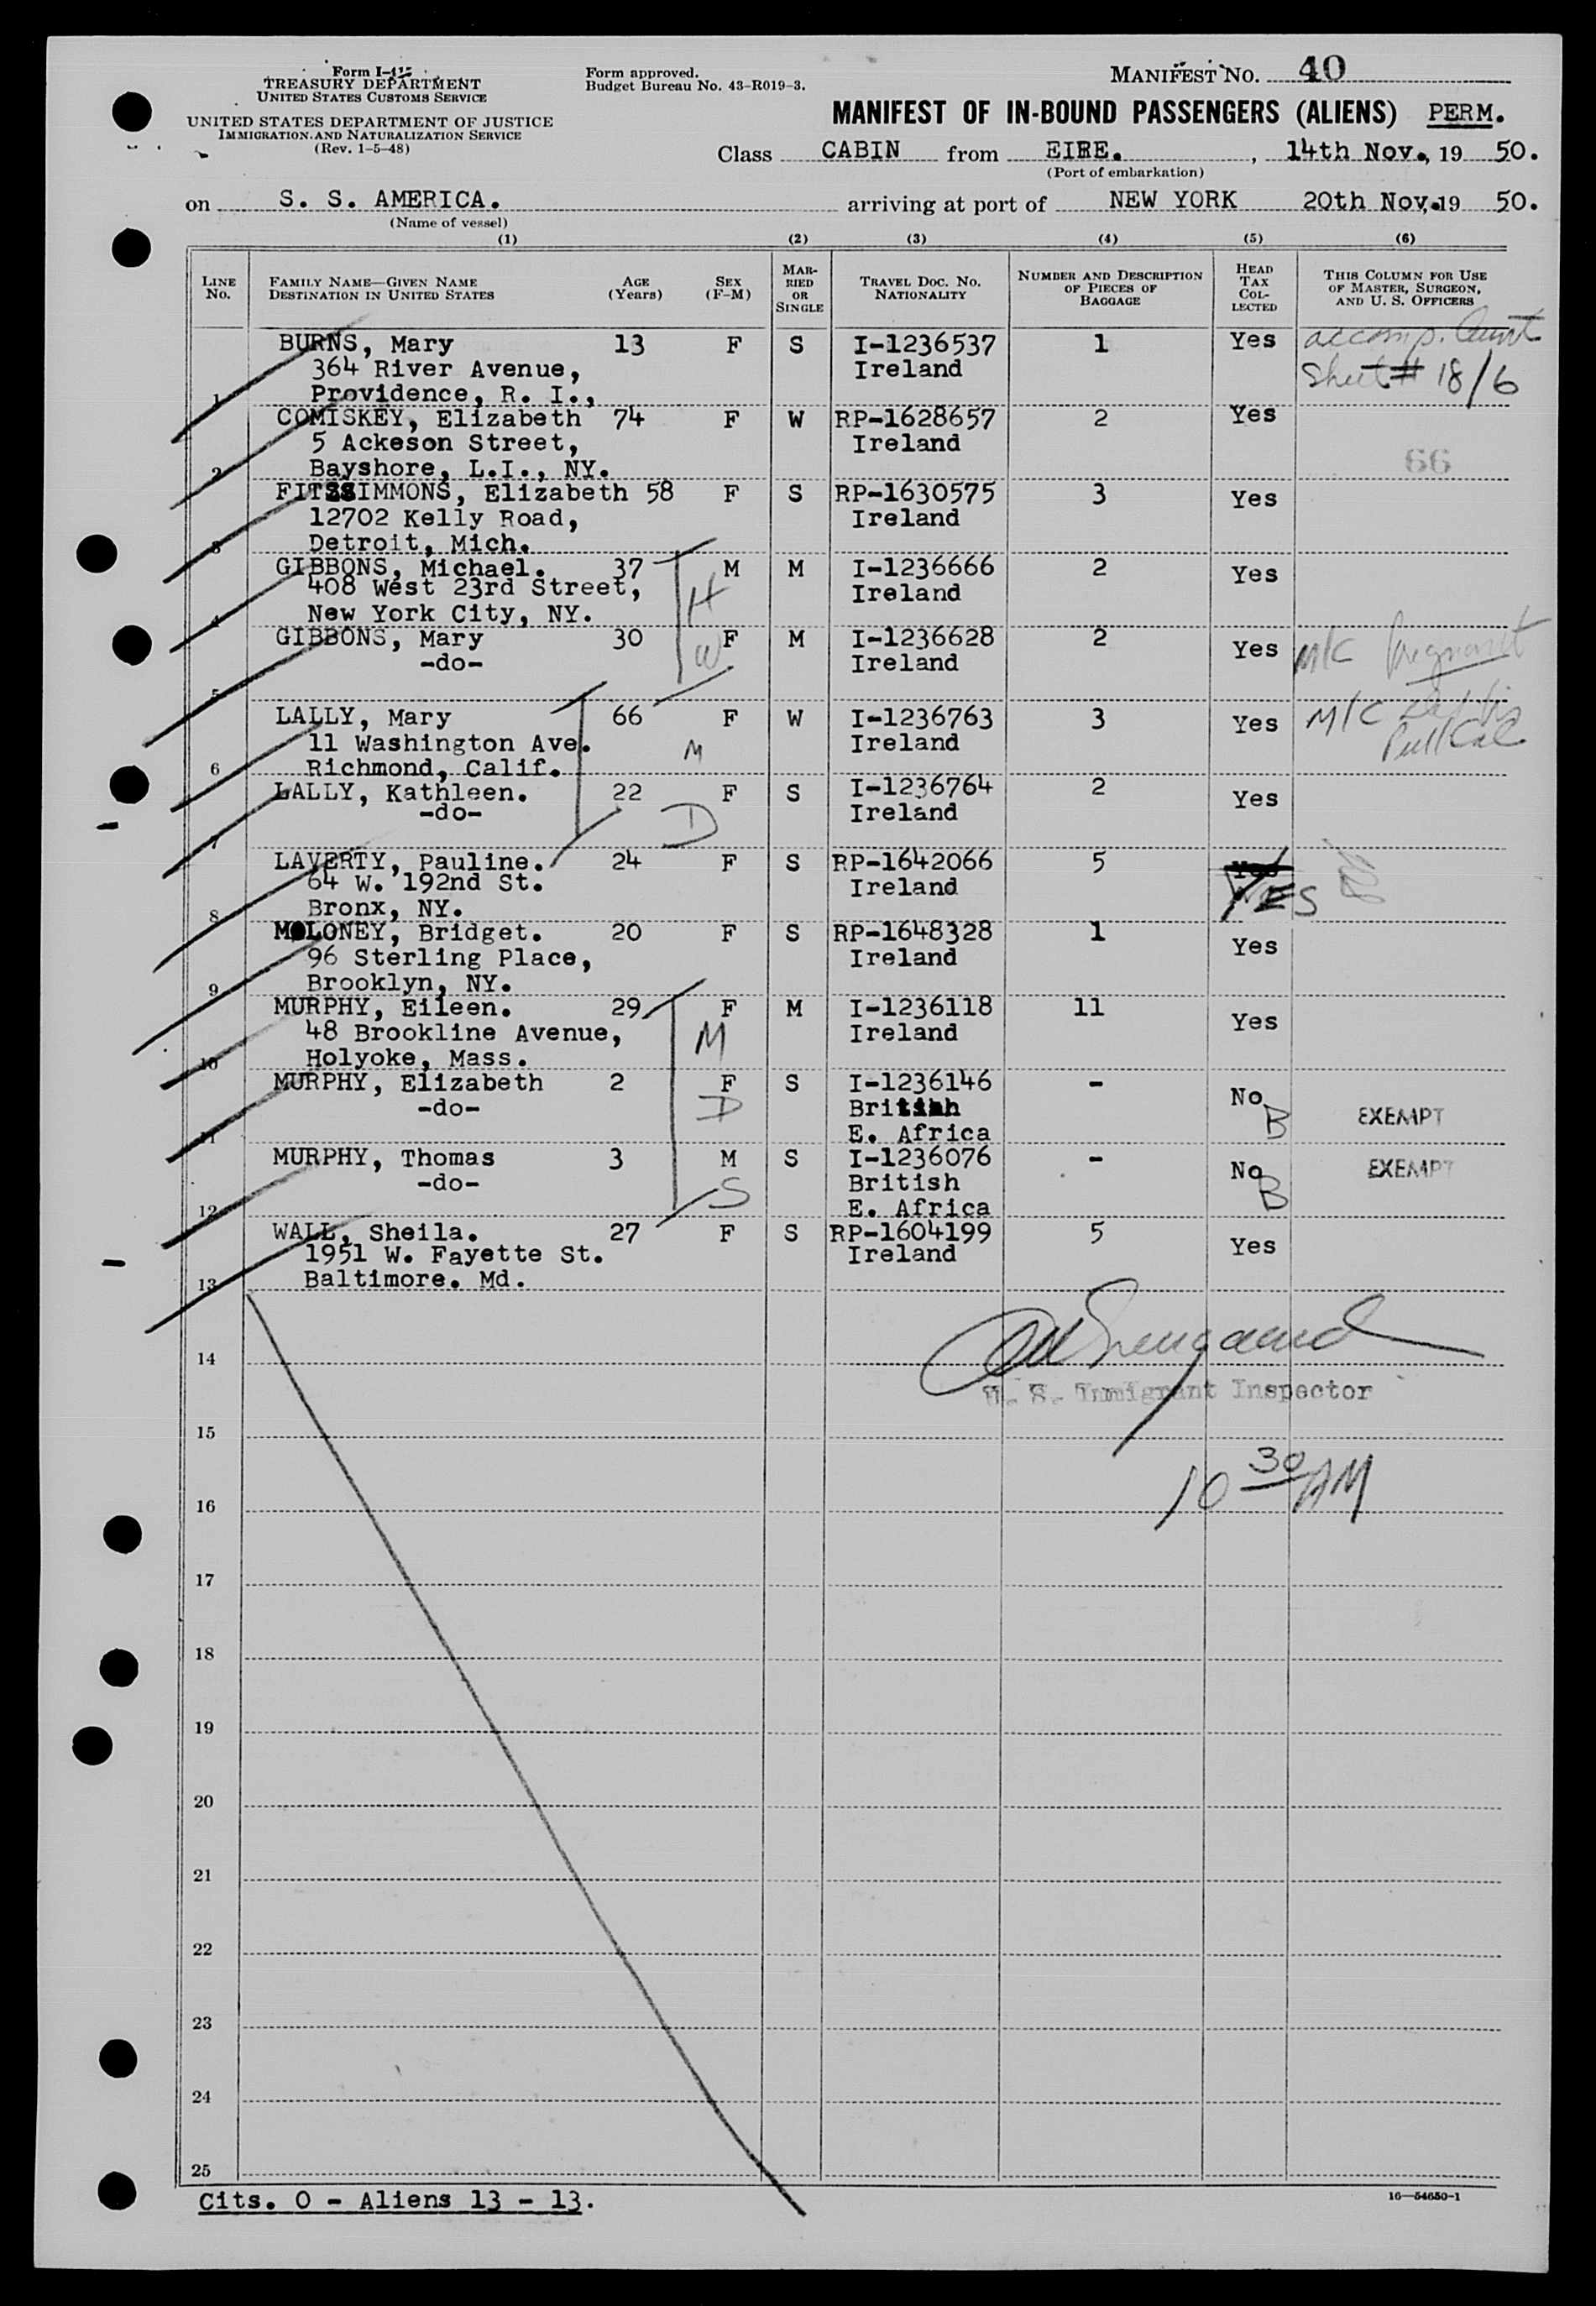 Form I-415
TREASURY DEPARTMENT
UNITED STATES CUSTOMS SERVICE
UNITED STATES DEPARTMENT OF JUSTICE
IMMIGRATION AND NATURALIZATION SERVICE
(Rev. 1-5-48)
Form approved.
Budget Bureau No. 43-R019-3.
MANIFEST NO. 40
MANIFEST OF IN-BOUND PASSENGERS (ALIENS) PERM.
Class CABIN from EIRE. , 14th Nov., 19 50.
(Port of embarkation)
on S. S. AMERICA. arriving at port of NEW YORK 20th Nov, 19 50.
(Name of vessel)
(1) (2) (3) (4) (5) (6)
LINE NO.
FAMILY NAME—GIVEN NAME
DESTINATION IN UNITED STATES
AGE (Years)
SEX (F-M)
MARRIED OR SINGLE
TRAVEL DOC. NO. NATIONALITY
NUMBER AND DESCRIPTION OF PIECES OF BAGGAGE
HEAD TAX COLLECTED
THIS COLUMN FOR USE OF MASTER, SURGEON, AND U. S. OFFICERS
BURNS, Mary 13 F S I-1236537 1 Yes accomp. Aunt
364 River Avenue, Ireland Sheet # 18/6
1 Providence, R. I.,
COMISKEY, Elizabeth 74 F W RP-1628657 2 Yes
5 Ackeson Street, Ireland
2 Bayshore, L.I., NY. 66
FITZSIMMONS, Elizabeth 58 F S RP-1630575 3 Yes
12702 Kelly Road, Ireland
3 Detroit, Mich.
GIBBONS, Michael. 37 M M I-1236666 2 Yes
408 West 23rd Street, H Ireland
4 New York City, NY.
GIBBONS, Mary 30 F M I-1236628 2 Yes M/C Pregnant
-do- W Ireland
5
LALLY, Mary 66 F W I-1236763 3 Yes M/C
11 Washington Ave. M Ireland
6 Richmond, Calif.
LALLY, Kathleen. 22 F S I-1236764 2 Yes
-do- D Ireland
7
LAVERTY, Pauline. 24 F S RP-1642066 5 Yes
64 W. 192nd St. Ireland YES
8 Bronx, NY.
MOLONEY, Bridget. 20 F S RP-1648328 1 Yes
96 Sterling Place, Ireland
9 Brooklyn, NY.
MURPHY, Eileen. 29 F M I-1236118 11 Yes
48 Brookline Avenue, M Ireland
10 Holyoke, Mass.
MURPHY, Elizabeth 2 F S I-1236146 - No B EXEMPT
-do- D British
11 E. Africa
MURPHY, Thomas 3 M S I-1236076 - No B EXEMPT
-do- S British
12 E. Africa
WALL, Sheila. 27 F S RP-1604199 5 Yes
1951 W. Fayette St. Ireland
13 Baltimore. Md.
14
U. S. Immigrant Inspector
15
10 30 AM
16
17
18
19
20
21
22
23
24
25
Cits. 0 - Aliens 13 - 13.
16—54650-1